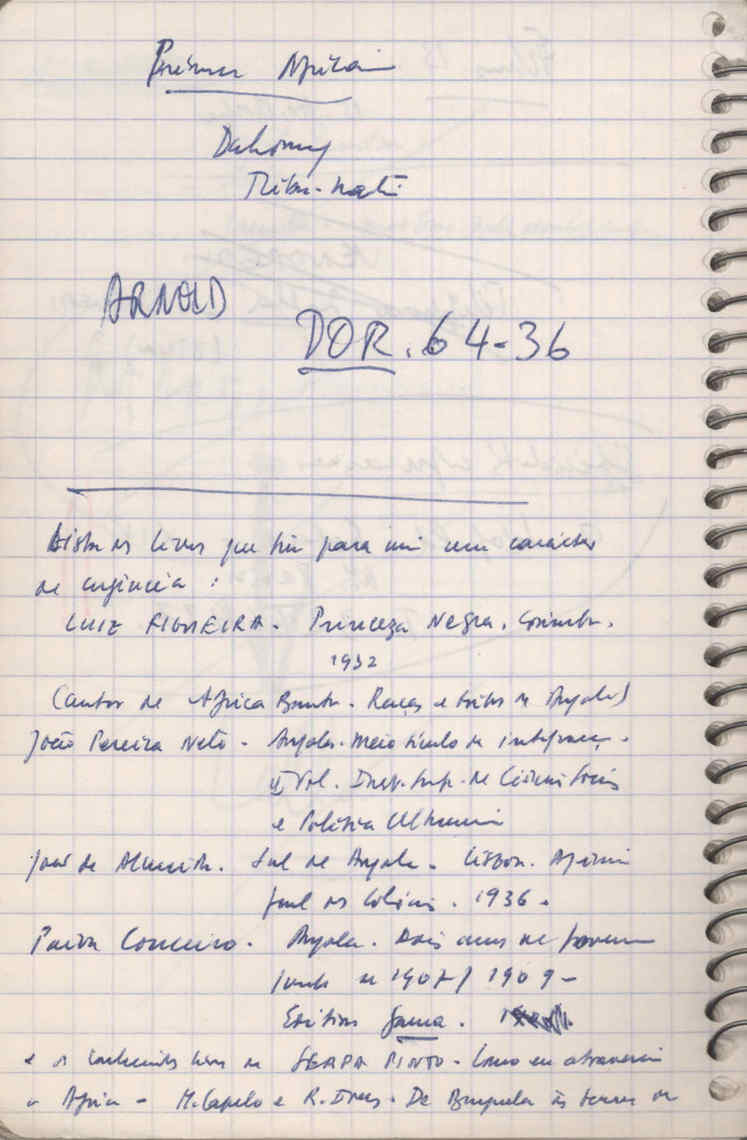 Présence Africaine
Dahomey
ARNOLD
DOR. 64-36
os livros que têm para mim um carácter
de urgência :
LUIZ FIGUEIRA. Princeza Negra. Coimbra.
1932
(autor de Africa Bantu. Raças e tribos de Angola)
João Pereira Neto - Angola. Meio século de integração.
1 Vol. Inst. Sup. de Ciências Sociais
e Política Ultramarina
João de Almeida. Sul de Angola. Lisboa. Agência
Geral das Colónias. 1936.
Paiva Couceiro. Angola. Dois anos de governo
junho de 1907 / 1909 -
Edições Gama.
e os conhecidos livros de SERPA PINTO - Como eu atravessei
a Africa - H. Capelo e R. Ivens. De Benguela às terras de